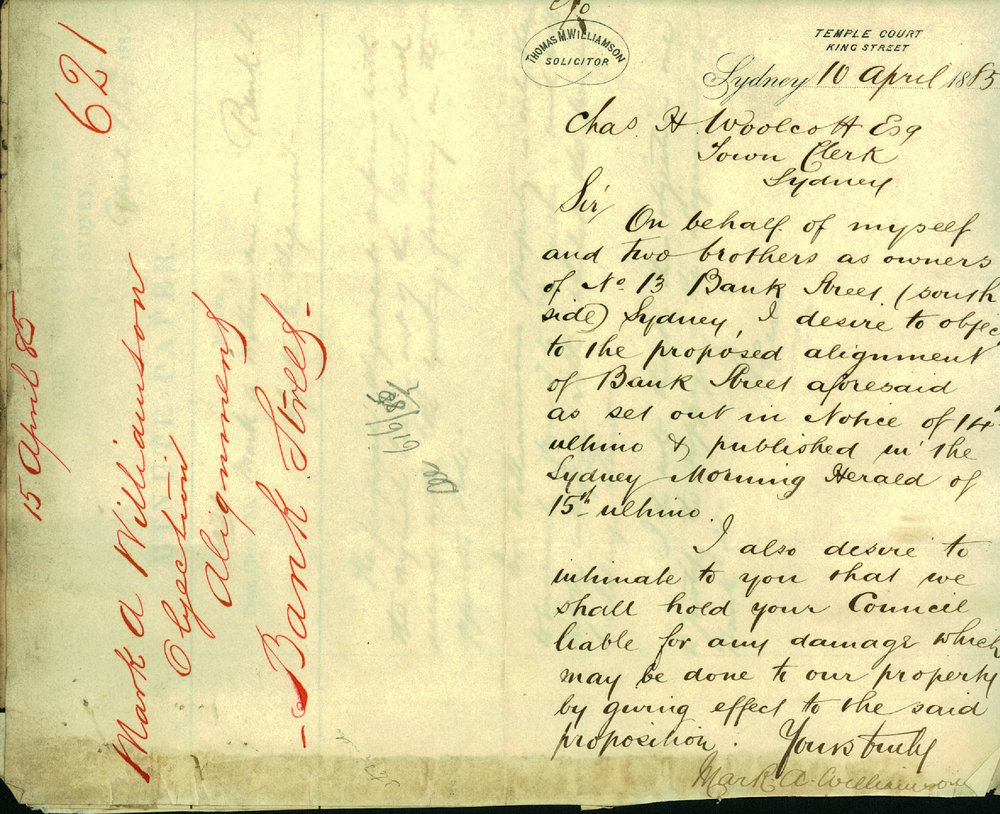 621
15 April 85
Mark A Williamson
Objection
Alignment
Bank Street
THOMAS M. WILLIAMSON
SOLICITOR
TEMPLE COURT
KING STREET
Sydney 10 April 1885
Chas. H. Woolcott Esq
Town Clerk
Sydney
Sir
On behalf of myself
and two brothers as owners
of No. 13 Bank Street (south
side) Sydney, I desire to objec
to the proposed alignment
of Bank Street aforesaid
as set out in Notice of 14th
ultimo & published in the
Sydney Morning Herald of
15th ultimo.
I also desire to
intimate to you that we
shall hold your Council
liable for any damage which
may be done to our property
by giving effect to the said
proposition. Yours truly
Mark. A. Williamson